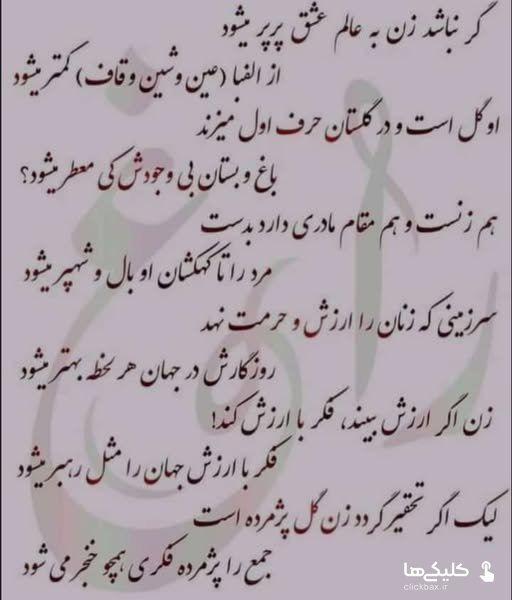 گر نباشد زن به عالم عشق پرپر میشود
از الفبا (عین وشین وقاف) کمتر میشود
او گل است و در گلستان حرف اول میزند
باغ و بستان بی وجودش کی معطر میشود؟
هم زنست و هم مقام مادری دارد بدست
مرد را تا کهکشان او بال و شهپر میشود
سرزمینی که زنان را ارزش و حرمت نهد
روزگارش در جهان هر لحظه بهتر میشود
زن اگر ارزش ببیند، فکر با ارزش کند!
فکر با ارزش جهان را مثل رهبر میشود
لیک اگر تحقیر گردد زن گل پژمرده است
جمع را پژمرده فکری همچو خنجر می شود
کلیکی‌ها
clickbax.ir